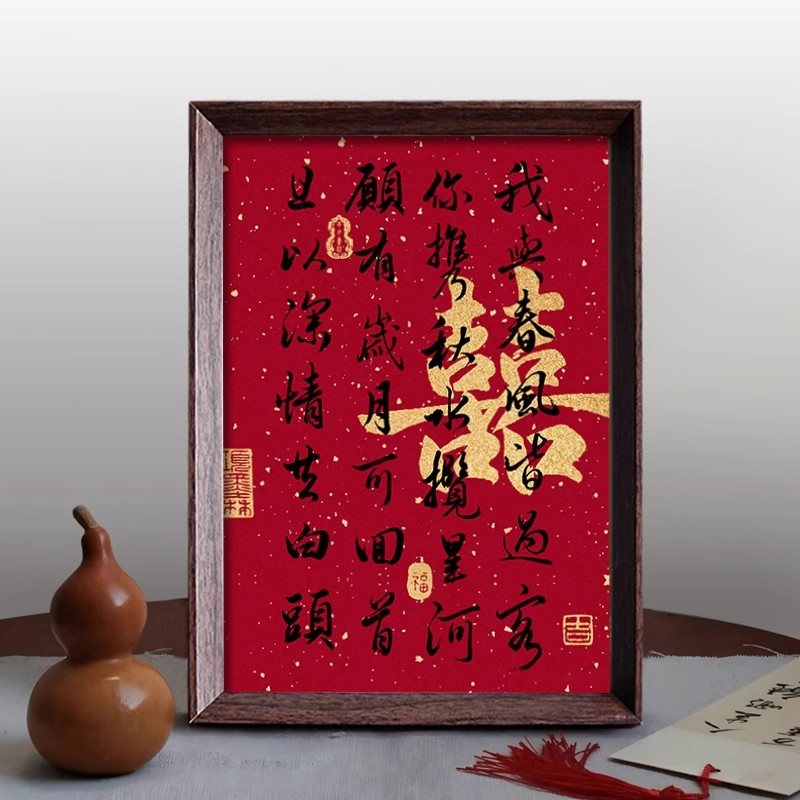 我與春風皆過客
你攜秋水攬星河
願有歲月可回首
且以深情共白頭
囍
福
吉